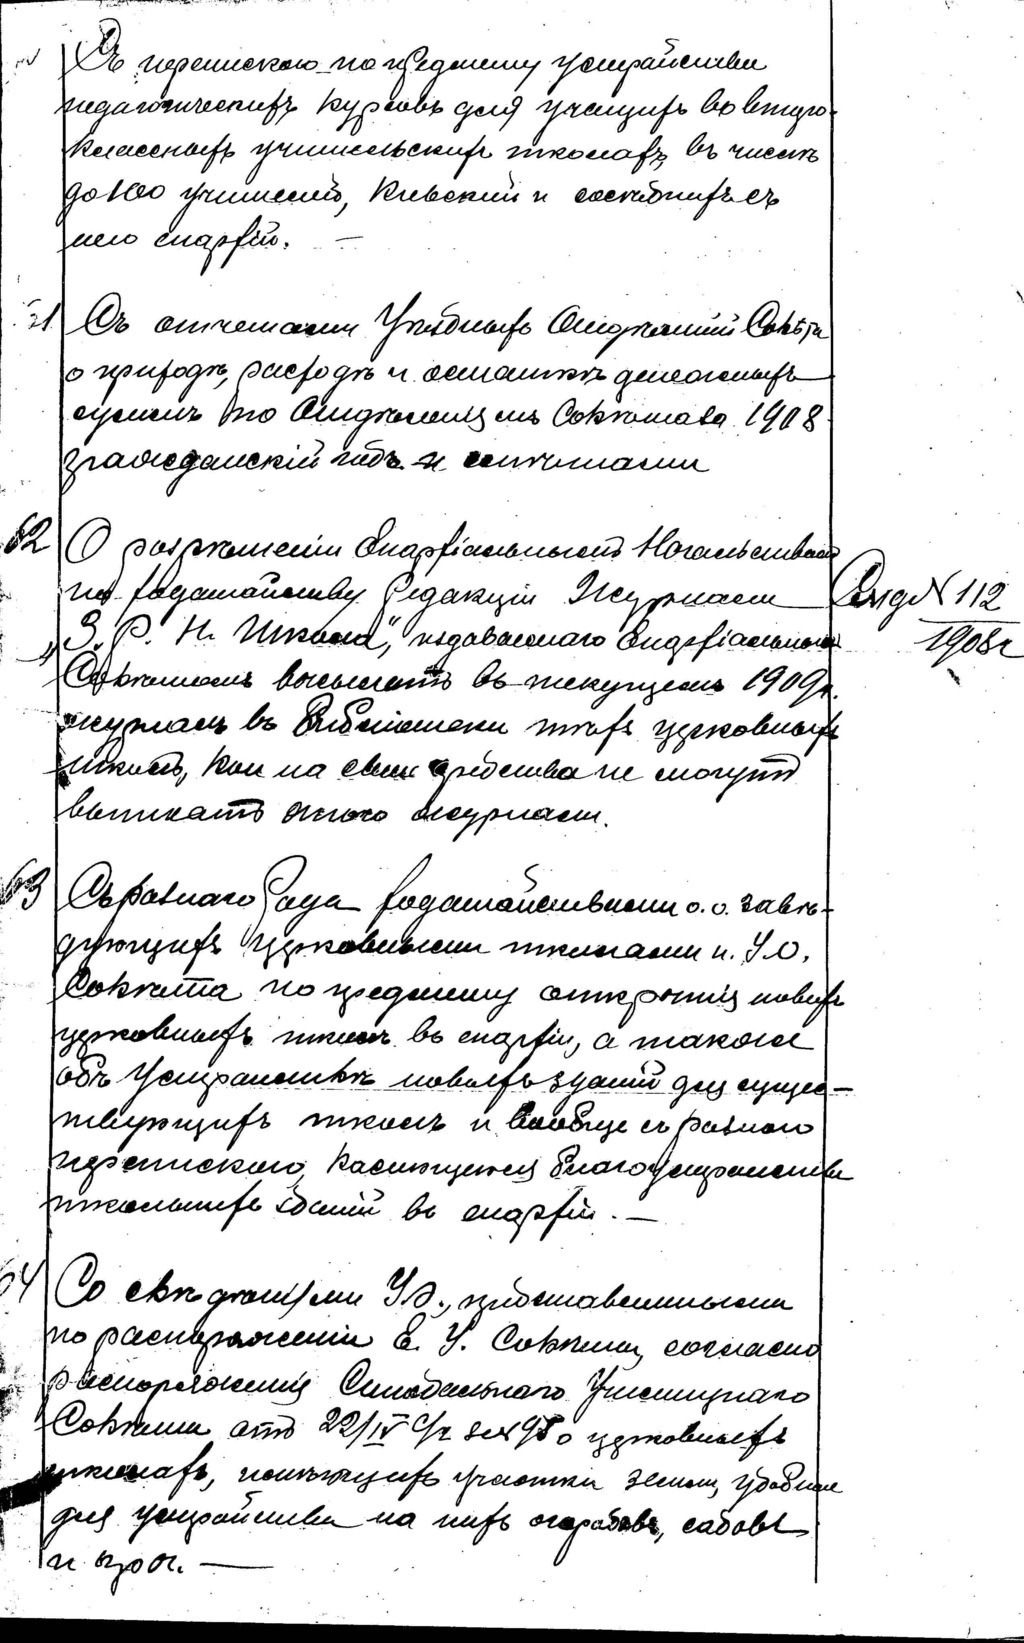 Съ перепискою по предмету устройства
педагогическихъ курсовъ для учащихъ во второ-
классныхъ учительскихъ школахъ, въ числѣ
до 100 учителей, Кіевской и сосѣднихъ съ
нею епархій. —
Съ отчетами Уѣздныхъ Отдѣленій Совѣта
о приходѣ, расходѣ и остаткѣ денежныхъ
суммъ по Отдѣленіямъ Совѣта за 1908
гражданскій годъ и смѣтами
62 О разрѣшеніи Епархіальнымъ Начальствомъ
по ходатайству Редакціи Журнала
"З. Р. Н. Школа", издаваемаго Епархіальнымъ
Совѣтомъ высылать въ текущемъ 1909 г.
журналъ въ библіотеки тѣхъ церковныхъ
школъ, кои на свои средства не могутъ
выписать этого журнала.
№ 112
1908 г
63 Съ разнаго рода ходатайствами о.о. завѣ-
дующихъ церковными школами и У. О.
Совѣта по предмету открытія новыхъ
церковныхъ школъ въ епархіи, а также
объ устройствѣ новыхъ зданій для сущес-
твующихъ школъ и вообще съ разною
перепискою, касающеюся благоустройства
школьныхъ зданій въ епархіи. —
64 Со свѣдѣніями У. О., представленными
по распоряженію Е. У. Совѣта, согласно
распоряженія Синодальнаго Училищнаго
Совѣта отъ 22/IV с/г за № о церковныхъ
школахъ, имѣющихъ участки земли, удобные
для устройства на нихъ огородовъ, садовъ
и проч. —